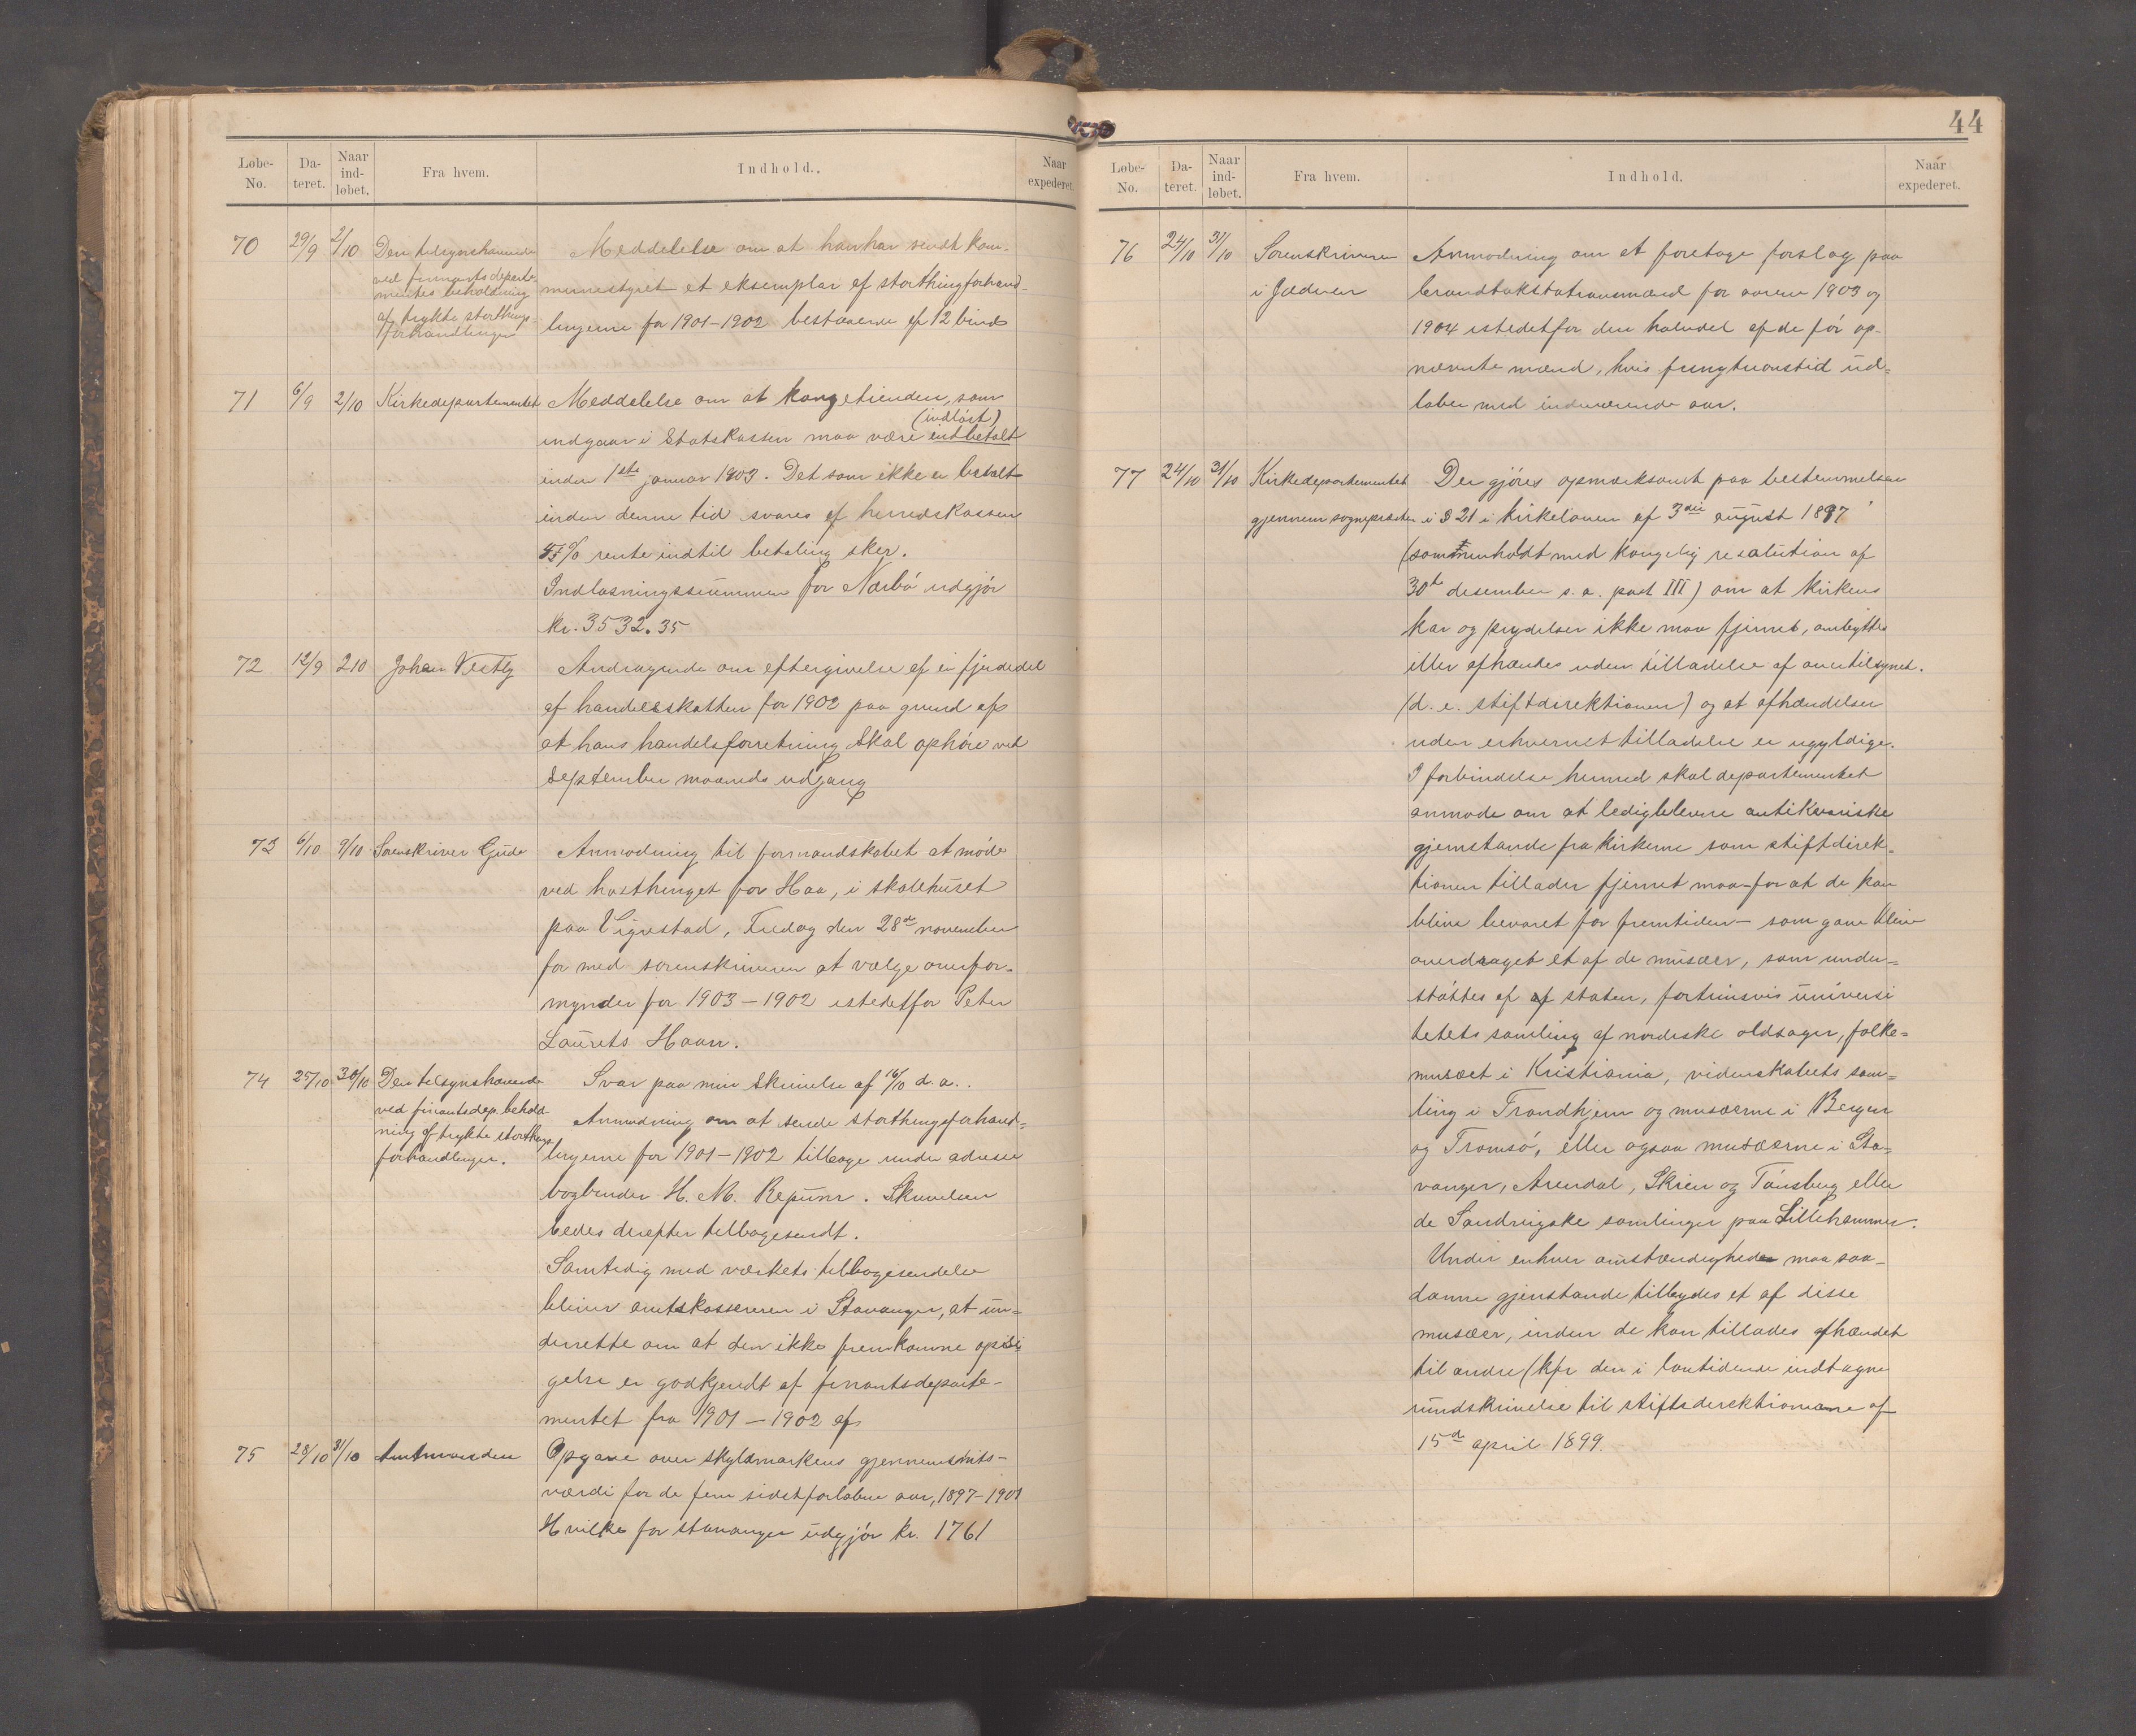 Løbe-No. Da-teret. Naar ind-løbet. Fra hvem. Indhold. Naar expederet.
70 29/9 2/10 Den tilsynshavende Meddelelse om at han har sendt kom-
ved finantsdeparte-
mentets beholdning munestyret et eksemplar af storthingsforhand-
af trykte storthings-
forhandlinger lingerne for 1901-1902 bestaaende af 12 bind
71 6/9 2/10 Kirkedepartementet Meddelelse om at kongetienden, som
(indløst)
indgaar i Statskassen maa være indbetalt
inden 1ste januar 1903. Det som ikke er betalt
inden denne tid svares af herredskassen
% rente indtil betaling sker.
Indløsningssummen for Nærbø udgjør
kr. 3532.35
72 12/9 2 10 Johan Vestly Andragende om eftergivelse af en fjerdedel
af handelsskatten for 1902 paa grund af
at hans handelsforretning skal ophøre ved
September maaneds udgang
73 6/10 9/10 Sorenskriver Gude Anmodning til formandskabet at møde
ved høstthinget for Haa, i skolehuset
paa Vigrestad, Fredag den 28de november
for med sorenskriveren at vælge overfor-
mynder for 1903-1902 istedetfor Peter
Laurets Haar.
74 25/10 30/10 Den tilsynshavende Svar paa min skrivelse af 16/10 d.a..
ved finantsdep. behold-
ning af trykte storthings Anmodning om at sende storthingsforhand-
forhandlinger. lingerne for 1901-1902 tilbage under adresse
bogbinder H. M. . Skrivelsen
bedes derefter tilbagesendt.
Samtidig med værkets tilbagesendelse
bliver amtskassereren i Stavanger, at un-
derrette om at den ikke fremkomne
er godkjendt af finantsdeparte-
mentet fra 1901-1902 af
75 28/10 31/10 Amtmanden Opgave over skyldmarkens gjennemsnits-
værdi for de fem sidst forløbne aar, 1897-1901
Hvilke for Stavanger udgjør kr. 1761
44
Løbe-No. Da-teret. Naar ind-løbet. Fra hvem. Indhold. Naar expederet.
76 24/10 31/10 Sorenskriveren Anmodning om at foretage forslag paa
i Jæderen brandtakstationsmænd for aarene 1903 og
1904 istedetfor den halvdel af de før op-
nævnte mænd, hvis fungtionstid ud-
løber med indeværende aar.
77 24/10 31/10 Kirkedepartementet Der gjøres opmærksomt paa bestemmelsen
gjennem sognepresten i § 21 i kirkeloven af 3die august 1897
(sammenholdt med kongelig resolution af
30te desember s. a. post III) om at kirkens
kar og prydelser ikke maa fjernes, ombyttes
eller afhændes uden tilladelse af overtilsynet.
(d. e. stiftdirektionen) og at afhændelser
uden erhvervet tilladelse er ugyldige.
I forbindelse hermed skal departementet
anmode om at ledigblevne antikvariske
gjenstande fra kirkerne som stiftdirek-
tionen tillader fjernet maa - for at de kan
blive bevaret for fremtiden - som gave blive
overdraget et af de musæer, som under-
støttes af af staten, fortrinsvis universi
tetets samling af nordiske oldsager, folke-
musæet i Kristiania, videnskabets sam-
ling i Trondhjem og musæerne i Bergen
og Tromsø, eller ogsaa musæerne i Sta-
vanger, Arendal, Skien og Tønsberg eller
de Sandvigske samlinger paa Lillehammer.
Under enhver omstændighed maa saa-
danne gjenstande tilbydes et af disse
musæer, inden de kan tillades afhændet
til andre (kfr den i lovtidende indtagne
rundskrivelse til stiftsdirektionerne af
15de april 1899.